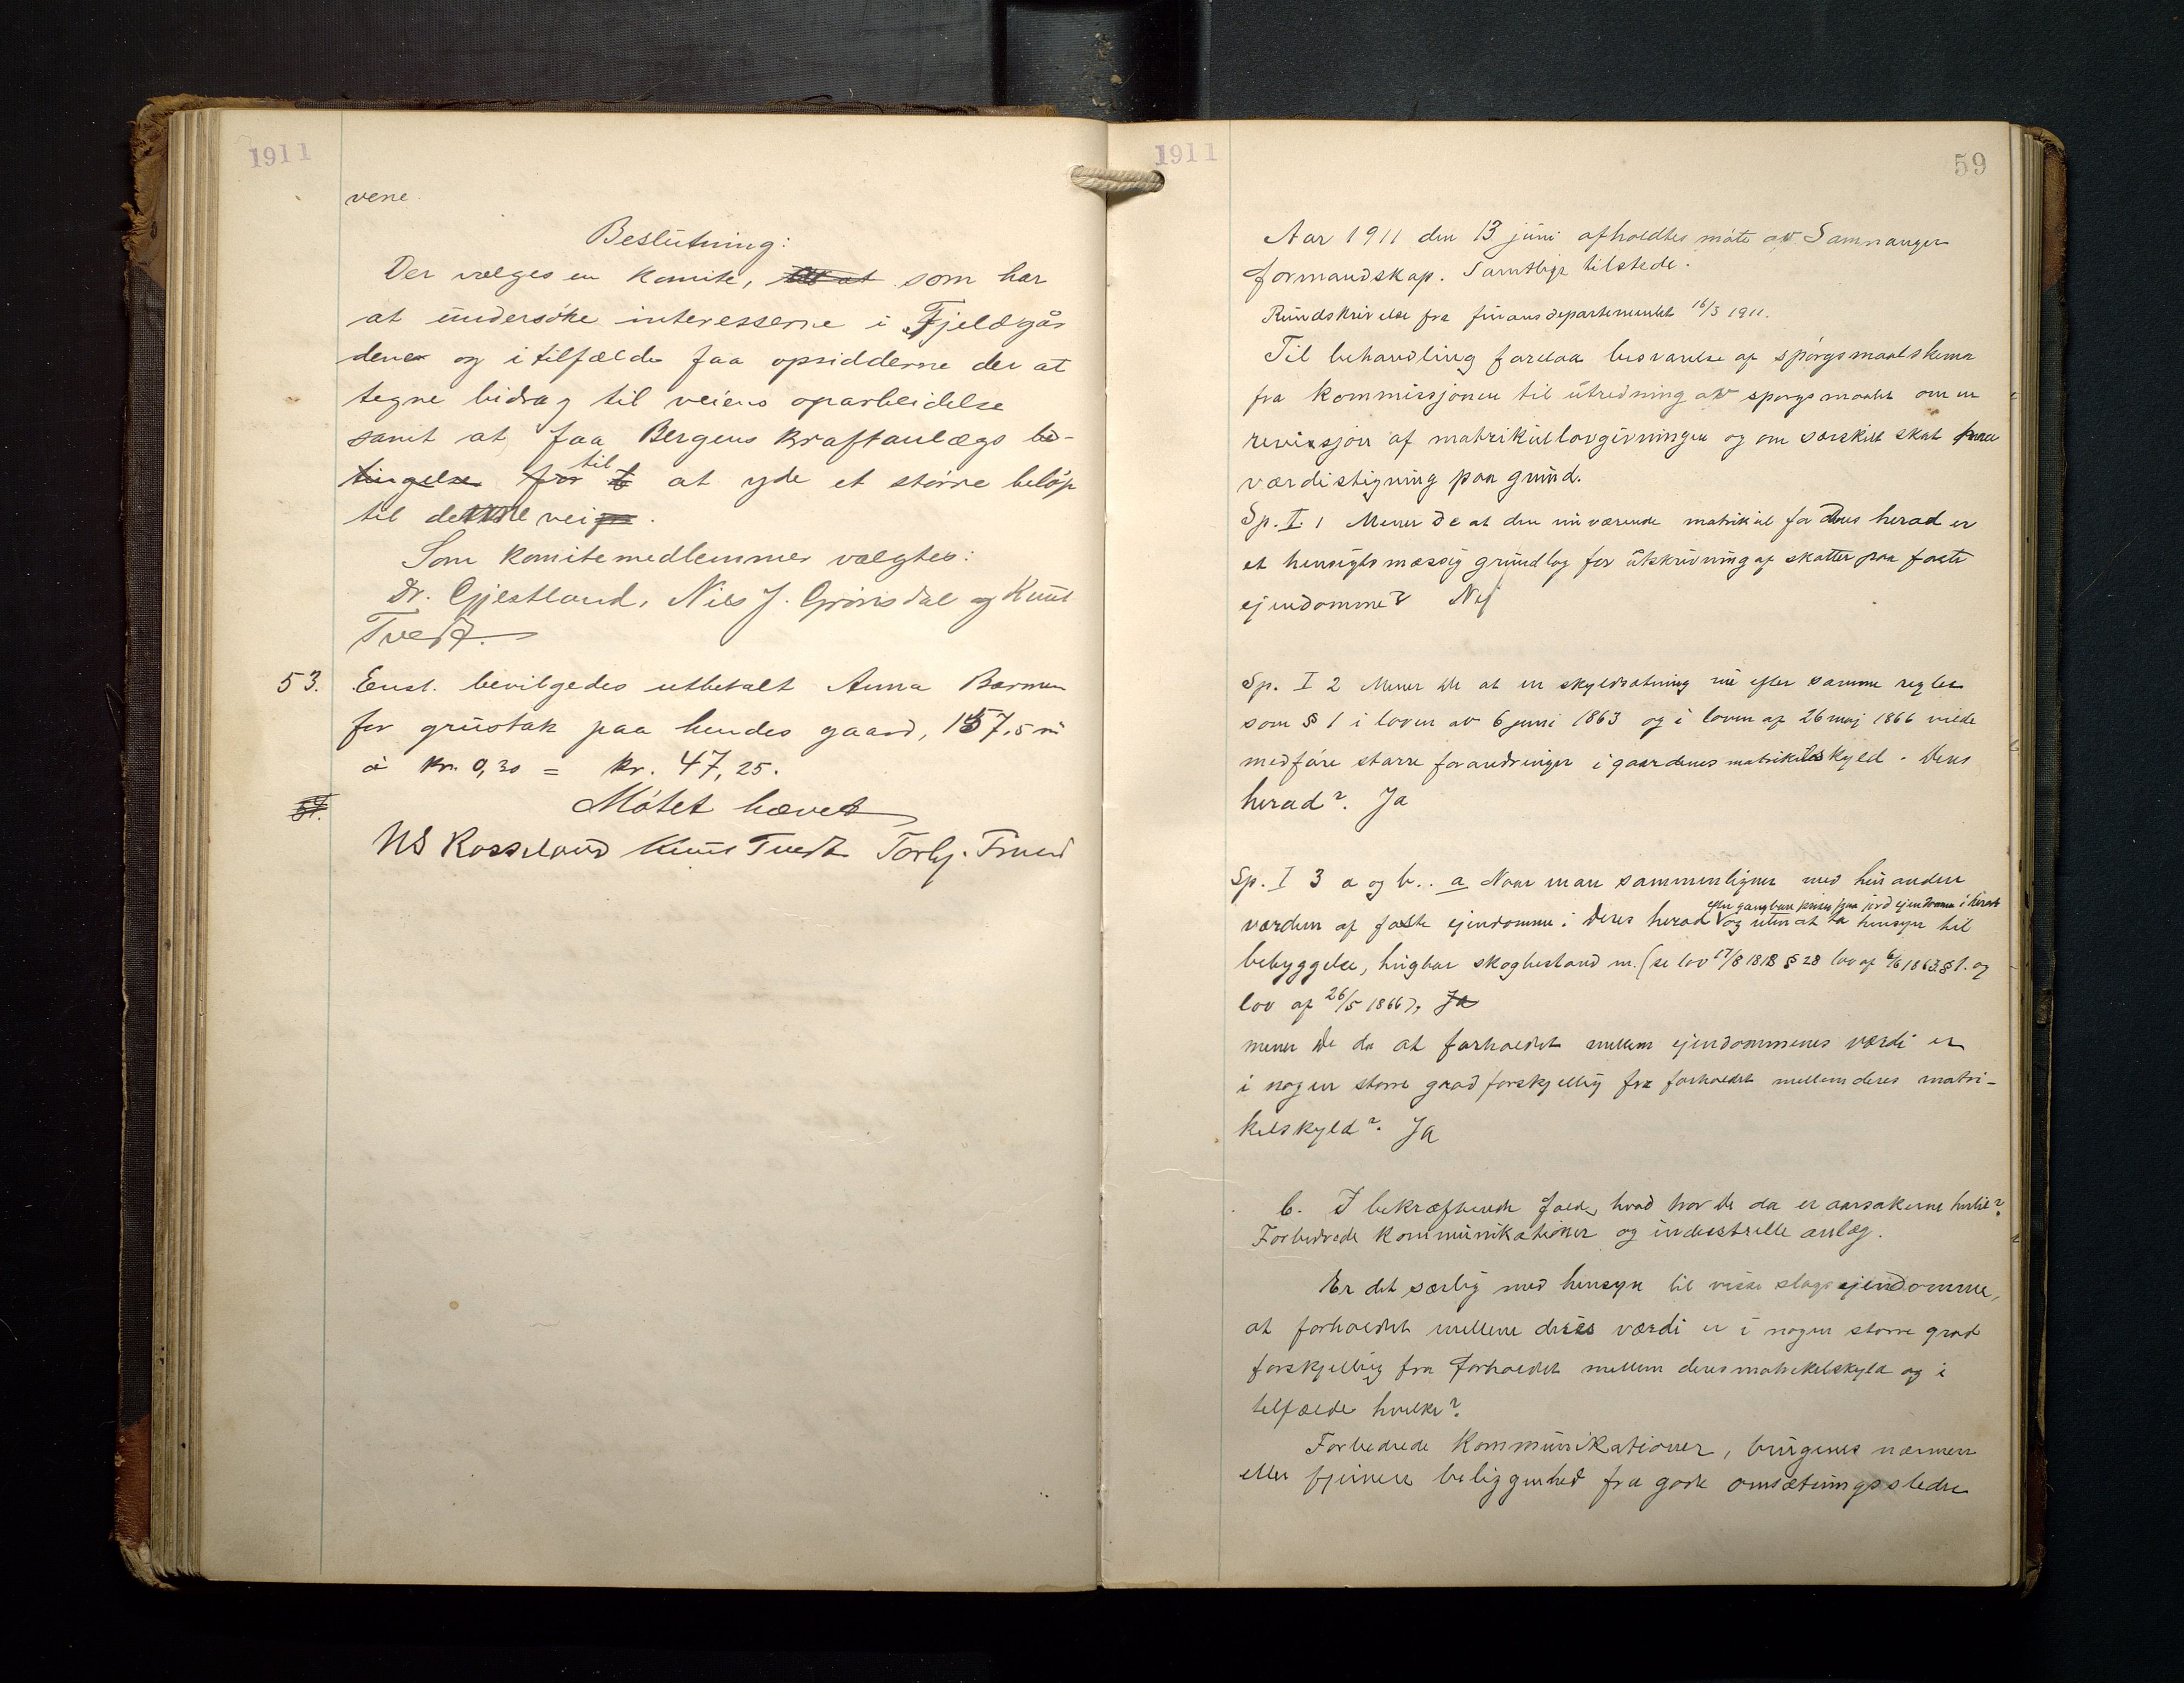 1911
vene.
Beslutning:
Der vælges en komite, som har
at undersöke interesserne i Fjeldgår
dene og i tilfælde faa opsidderne der at
tegne bidrag til veiens oparbeidelse
samt at faa Bergens Kraftanlægs be-
tingelse for til at yde et större belöp
til denne vei.
Som komitemedlemmer valgtes:
Dr. Gjestland, Nils J. Grönsdal og Knut
Tvedt.
53. Enst. bevilgedes utbetalt Anna Barmen
for grustak paa hendes gaard, 157,5 m³
à kr. 0,30 = kr. 47,25.
54. Mötet hævet
NS Rosseland Knut Tvedt Torbj.
1911
59
Aar 1911 den 13 juni afholdtes möte av Samnanger
formandskap. Samtlige tilstede.
Rundskrivelse fra finansdepartementet 16/3 1911.
Til behandling forelaa besvarelse af spörgsmaalskema
fra kommissjonen til utredning av spørgsmaalet om en
revissjon af matrikullovgivningen og om særskilt skat paa
værdistigning paa grund.
Sp. I. 1 Mener De at den nuværende matrikul for Deres herad er
et hensigtsmæssig grundlag for utskrivning af skatter paa faste
ejendomme? Nej
Sp. I 2 Mener De at en skyldsætning nu efter samme regler
som § 1 i loven av 6 juni 1863 og i loven af 26 maj 1866 vilde
medføre større forandringer i gaardenes matrikulskyld i Deres
herad? Ja
Sp. I 3 a og b.. a Naar man sammenligner med hinanden
efter gangbare priser paa jordejendomme i herad
værdien af faste ejendomme i Deres herad og uten at ta hensyn til
bebyggelse, hugbar skogbestand m. (se lov 17/8 1818 § 28 lov af 6/6 1863 § 1. og
lov af 26/5 1866), Ja
mener De da at forholdet mellem ejendommenes værdi er
i nogen større grad forskjellig fra forholdet mellem deres matri-
kelskyld? Ja
b. I bekræftende fald, hvad tror De da er aarsakerne hertil?
Forbedrede kommunikationer og industrielle anlæg.
Er det særlig med hensyn til visse slags ejendomme,
at forholdet mellem deres værdi er i nogen større grad
forskjellig fra forholdet mellem deres matrikelskyld og i
tilfælde hvilke?
Forbedrede kommunikationer, brugenes nærmere
eller fjernere beliggenhed fra gode omsætningssteder